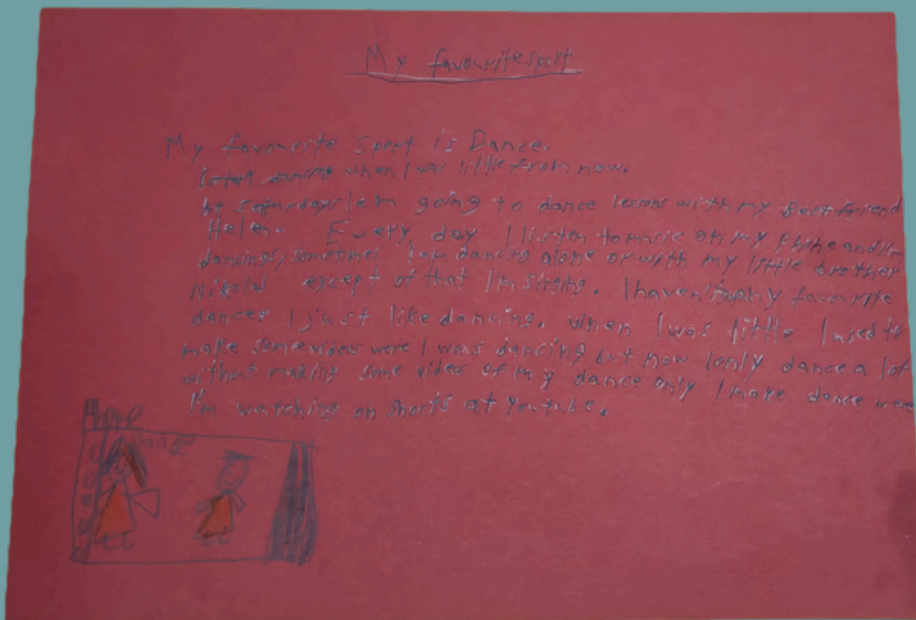 My favourite sport
My favourite sport is Dance.
I start dancing when I was little from now.
At saturdays I am going to dance lessons with my best friend
Helen. Every day I listen to music on my phone and I'm
dancing, sometimes I am dancing alone or with my little brother
Nikolas except of that I'm singing. I haven't any favourite
dancer I just like dancing. When I was little I used to
make some videos were I was dancing but now I only dance a lot
without making some videos of my dance only I make dance were
I'm watching on shorts at Youtube.